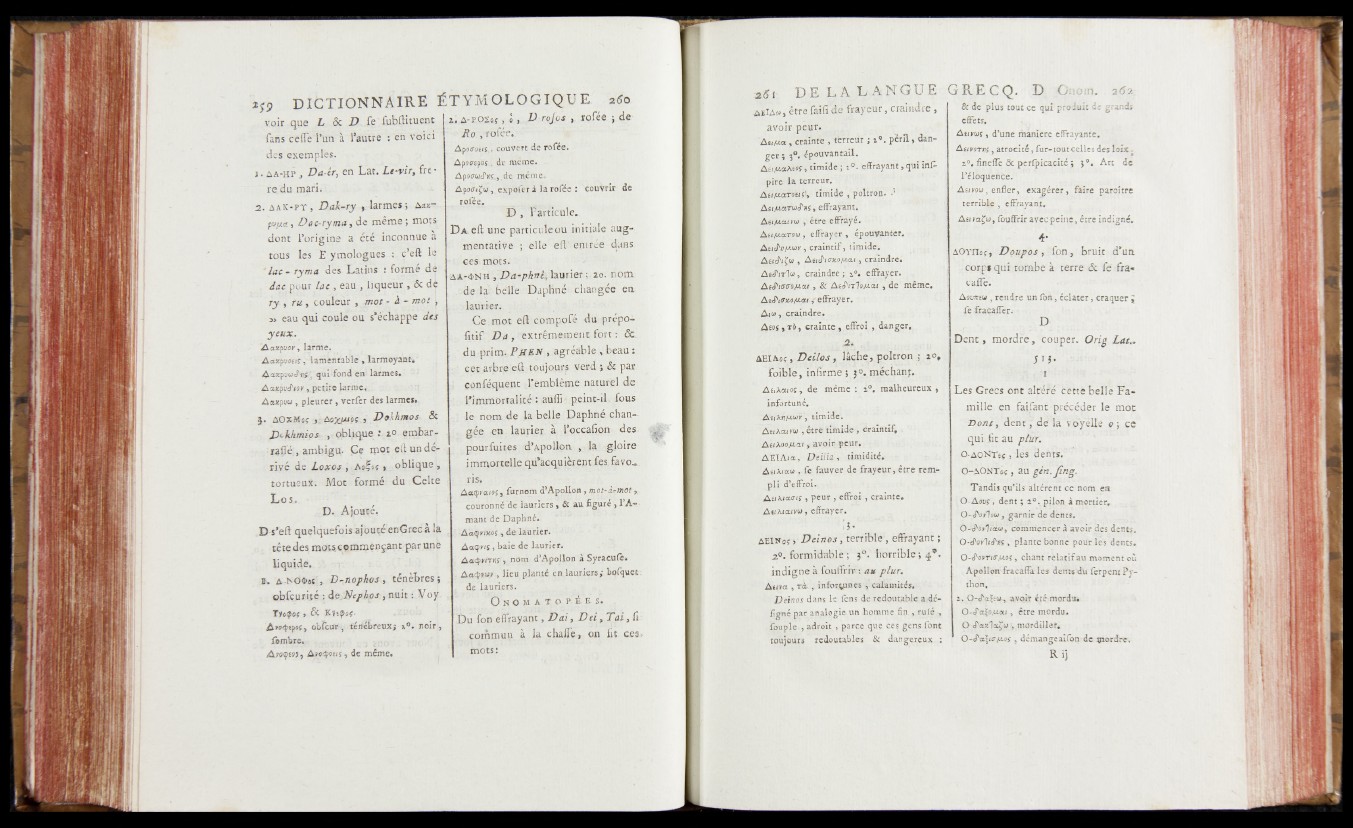 259 DICTIONNAIRE ÉTYMOLOGIQUE 260
voir que L & D se substituent
sans cesse l'un à l'autre : en voici
des exemples.
1. ΔΑ-ΗΡ , Da-ér, en Lat. Le-vir, fre-
re du mari.
2. ΔΑΚ-ΡΥ , Dak-ry , larmes ; Δακ-
ρυμα , Dac-ryma, de même ; mots
dont l'origine a été inconnue à
tous les Etymologues : c'est le
lac-ryma des Latins : formé de
dac pour lac , eau , liqueur , & de
ry , ru , couleur , mot-à-mot ,
» eau qui coule ou s'échappe des
yeux.
Δακρυον , larme.
Δακρυοεις , lamentable , larmoyant.
Δακρυωδης , qui fond en larmes.
Δακρυδιον , petite larme.
Δακρυω , pleurer , verser des larmes.
3. ΔΟΧΜος , Δοχμιος , Dokhmos &
Dokhmios , oblique : 2° embar-
rassé , ambigu. Ce mot est un dé-
rivé de Loxos , Λοξος , oblique ,
tortueux. Mot formé du Celte
Los.
D. Ajouté.
D s'est quelquefois ajouté en Grec à la
tête des mots commençant par une
liquide.
1. Δ-ΝΟΦος , D-nophos , ténèbres ;
obscurité : de Nephos , nuit : Voy.
Γνοφος , & Κνεφας.
Δνοφερος, obscur , ténébreux ; 2°. noir,
sombre.
Δνοφεος, Δνοφοεις , de même.
2. Δ-ΡΟΣος , ὁ , D rosos , rosée ; de
Ro , rosée.
Δροσοεις , couvert de rosée.
Δροσερος , de même.
Δροσωδης , de même.
Δροσιζω , exposer à la rosée : couvrir de
rosée.
D , l'article.
DA est une particule ou initiale aug-
mentative ; elle est entrée dans
ces mots.
ΔΑ-ΦΝΗ , Da-phné, laurier : 2o. nom
de la belle Daphné changée en
laurier.
Ce mot est composé du prépo-
sitif Da , extrêmement fort : &
du prim. PHEN , agréable , beau :
cet arbre est toujours verd ; & par
conséquent l'emblême naturel de
l'immortalité : aussi peint-il sous
le nom de la belle Daphné chan-
gée en laurier à l'occasion des
poursuites d'Apollon , la gloire
immortelle qu'acquièrent ses favo-
ris.
Δαφναιος, surnom d'Apollon , mot-à-mot ,
couronné de lauriers , & au figuré , l'A-
mant de Daphné.
Δαφνικος , de laurier.
Δαφνις , baie de laurier.
Δαφνιτης , nom d'Apollon à Syracuse.
Δαφνων , lieu planté en lauriers ; bosquet
de lauriers.
ONOMATOPÉES.
Du son effrayant , Dai , Dei , Tai , si
commun à la chasse , on fit ces
mots :
261 DE LA LANGUE GRECQ. D Onom. 262
ΔΕΙΔω, être saisi de frayeur , craindre ,
avoir peur.
Δειμα , crainte , terreur ; 2°. péril , dan-
ger ; 3°. épouvantail.
Δειμαλεος , timide ; 2°. effrayant , qui ins-
pire la terreur.
Δειματοεις , timide , poltron.
Δειματωδης , effrayant.
Δειμαινω , être effrayé.
Δειματοω , effrayer , épouvanter.
Δειδημων , craintif , timide.
Δειδιζω , Δειδισκομαι , craindre.
Δεδιτ̓ω , craindre ; 2°. effrayer.
Δεδισσομαι , & Δεδιτ̓ομαι , de même.
Δεδισκομαι , effrayer.
Δειω , craindre.
Δεος , τὸ , crainte , effroi , danger.
2.
ΔΕΙΛος , Deilos , lâche , poltron ; 2°,
foible , infirme ; 3°. méchant.
Δειλαιος , de même : 2°. malheureux ,
infortuné.
Δειλημων , timide.
Δειλαινω , être timide , craintif.
Δειλοομαι , avoir peur.
ΔΕΙΛια , Deilia , timidité.
Δειλιαω , se sauver de frayeur , être rem-
pli d'effroi.
Δειλιασις , peur , effroi , crainte.
Δειλιαινω , effrayer.
3.
ΔΕΙΝος , Deinos , terrible , effrayant ;
2°. formidable ; 3°. horrible ; 4°.
indigne à souffrir : au plur.
Δεινα , τὰ , infortunes , calamités.
Deinos dans le sens de redoutable a dé-
signé par analogie un homme fin , rusé ,
souple , adroit , parce que ces gens sont
toujours redoutables & dangereux ;
& de plus tout ce qui produit de grands
effets.
Δεινως , d'une maniere effrayante.
Δεινοτης , atrocité , sur-tout celles des loix ;
2°. finesse & perspicacité ; 3°. Art de
l'éloquence.
Δεινοω , enfler , exagérer , faire paroître
terrible , effrayant.
Δειναζω , souffrir avec peine , être indigné.
4.
ΔΟΥΠος , Doupos , son , bruit d'un
corps qui tombe à terre & se fra-
casse.
Δουπεω , rendre un son , éclater , craquer ;
se fracasser.
D
Dent , mordre , couper. Orig Lat.
515.
I
Les Grecs ont altéré cette belle Fa-
mille en faisant précéder le mot
Dont , dent , de la voyelle o ; ce
qui fit au plur.
Ο-ΔΟΝΤες , les dents.
Ο-ΔΟΝΤος , au gén. sing.
Tandis qu'ils altérent ce nom en
Ο-Δους , dent ; 2°. pilon à mortier.
Ο-δοντοω , garnir de dents.
Ο-δοντιαω , commencer à avoir des dents.
Ο-δοντιδης , plante bonne pour les dents.
Ο-δοντισμος , chant relatif au moment où
Apollon fracassa les dents du serpent Py-
thon.
2. Ο-δαξω , avoir été mordu.
Ο-δαξομαι , être mordu.
Ο-δακταζω , mordiller.
Ο-δαξισμος , démangeaison de mordre.
R ij